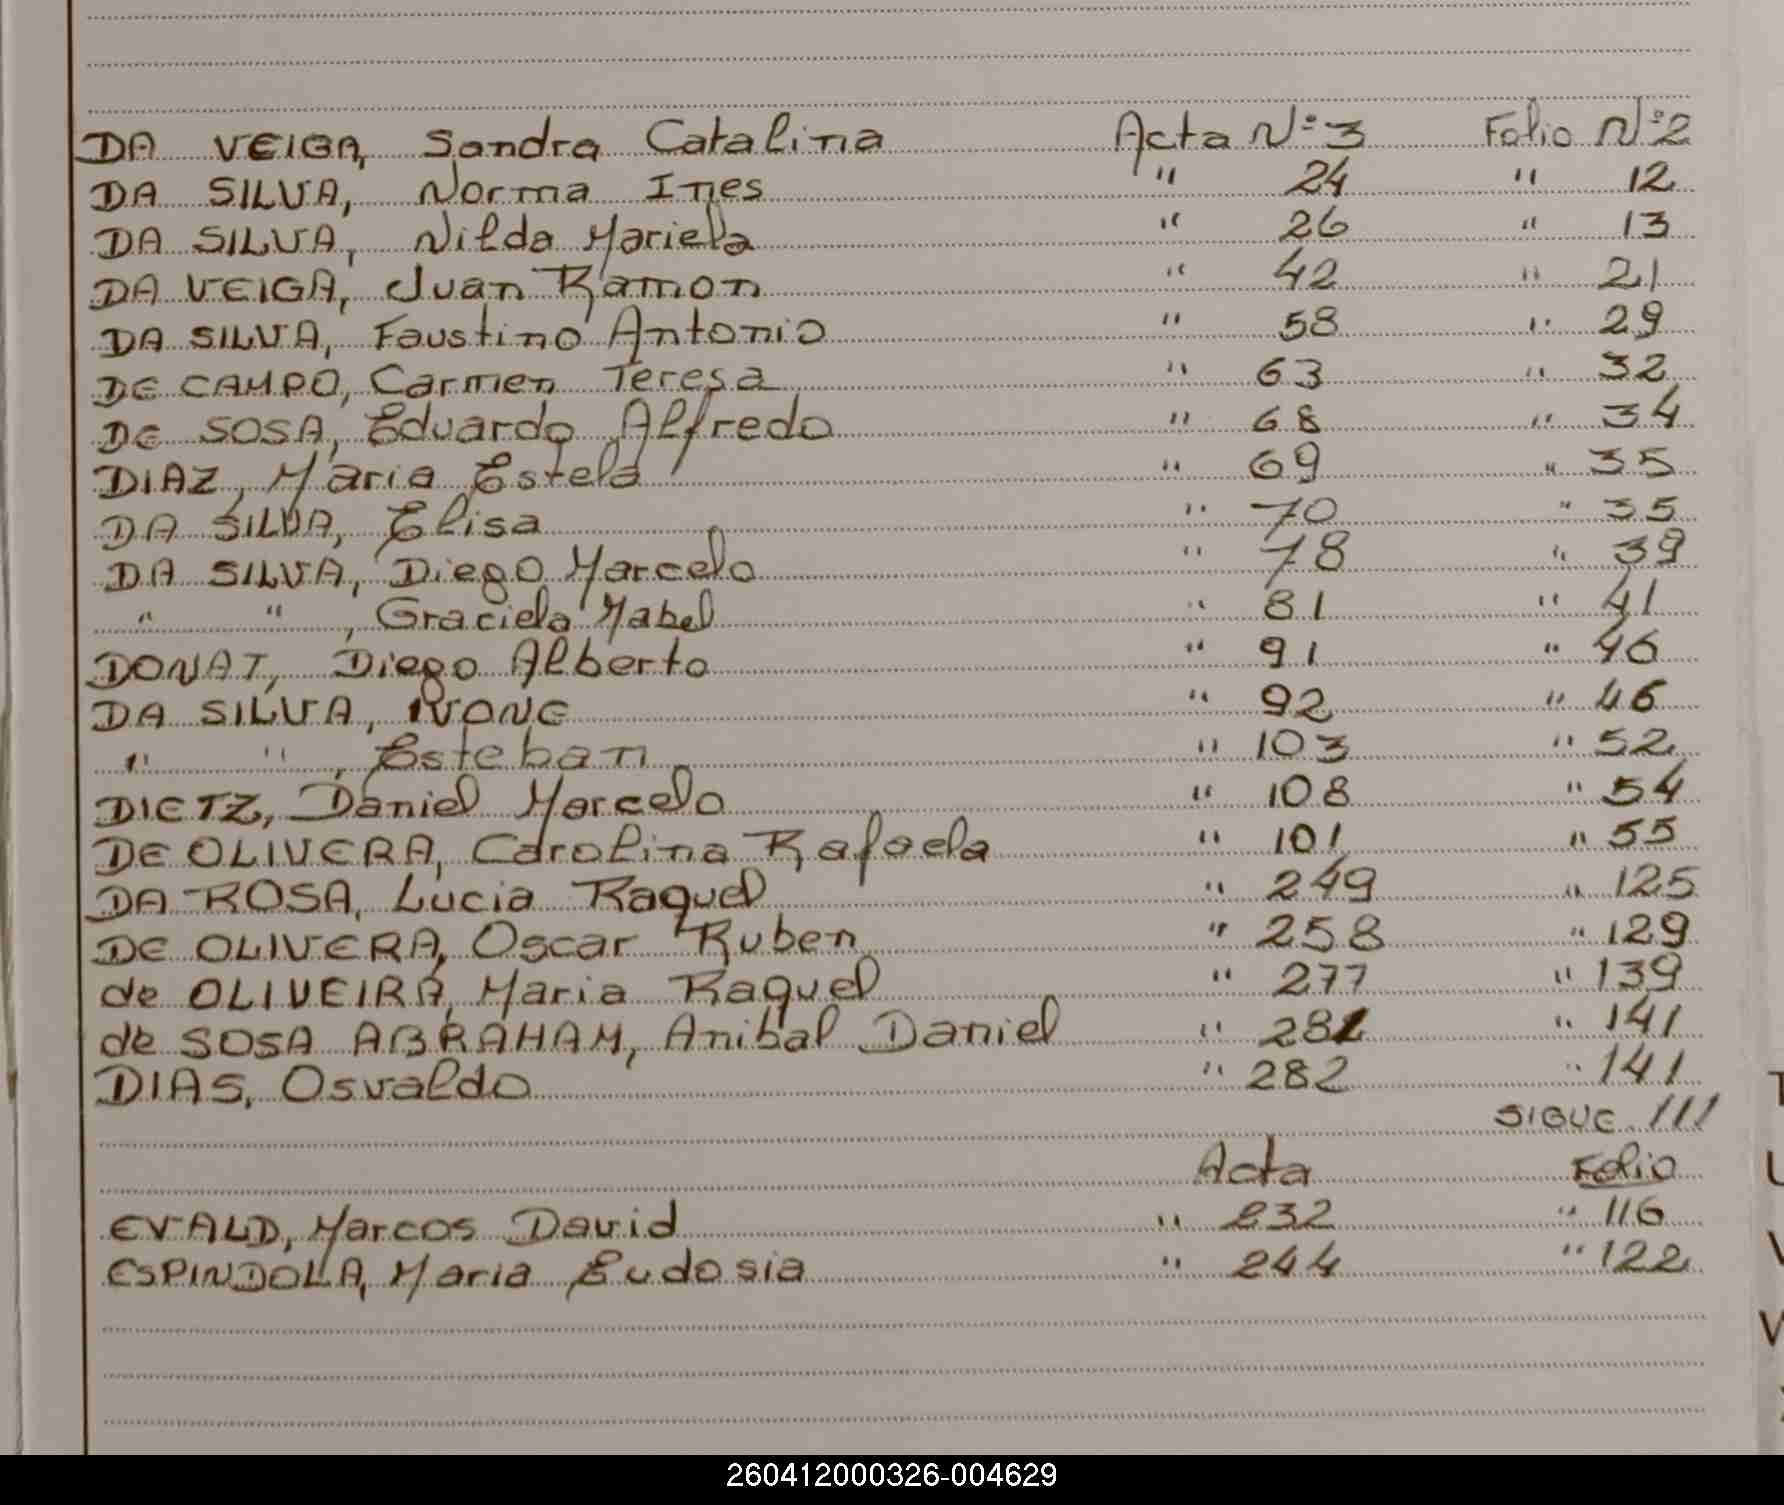 DA VEIGA, Sandra Catalina Acta Nº 3 Folio Nº 2
DA SILVA, Norma Ines " 24 " 12
DA SILVA, Nilda Mariela " 26 " 13
DA VEIGA, Juan Ramon " 42 " 21
DA SILVA, Faustino Antonio " 58 " 29
DE CAMPO, Carmen Teresa " 63 " 32
DE SOSA, Eduardo Alfredo " 68 " 34
DIAZ, Maria Estela " 69 " 35
DA SILVA, Elisa " 70 " 35
DA SILVA, Diego Marcelo " 78 " 39
" " , Graciela Mabel " 81 " 41
DONAT, Diego Alberto " 91 " 46
DA SILVA, IVONE " 92 " 46
" " , Esteban " 103 " 52
DIETZ, Daniel Marcelo " 108 " 54
DE OLIVERA, Carolina Rafaela " 101 " 55
DA ROSA, Lucia Raquel " 249 " 125
DE OLIVERA, Oscar Ruben " 258 " 129
de OLIVEIRA, Maria Raquel " 277 " 139
de SOSA ABRAHAM, Anibal Daniel " 281 " 141
DIAS, Osvaldo " 282 " 141
SIGUE ///
Acta Folio
EVALD, Marcos David " 232 " 116
ESPINDOLA, Maria Eudosia " 244 " 122
260412000326-004629